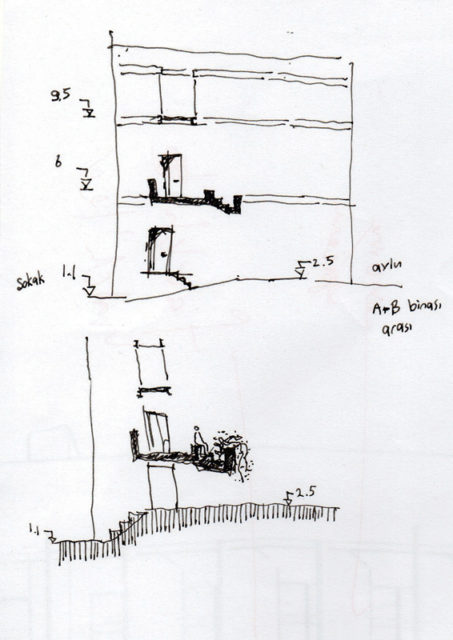 9.5
6
sokak 1.1
2.5
avlu
A+B binası
arası
2.5
1.1